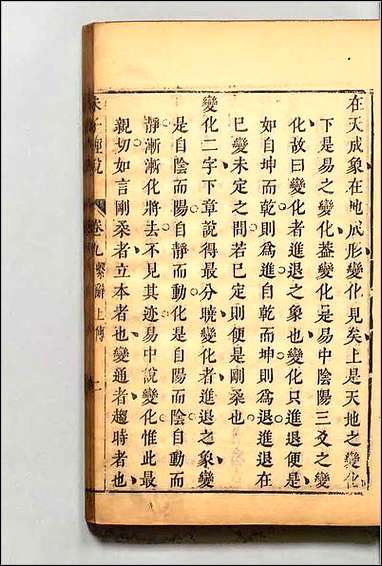 在天成象在地成形變化見矣上是天地之變化
下是易之變化蓋變化是易中陰陽三爻之變
化故曰變化者進退之象也變化只進退便是
如自坤而乾則為進自乾而坤則為退進退在
已變未定之間若已定則便是剛柔也
變化二字下章說得最分曉變化者進退之象變
是自陰而陽自靜而動化是自陽而陰自動而
靜漸漸化將去不見其迹易中說變化惟此最
親切如言剛柔者立本者也變通者趨時者也
朱子經說 卷九繫辭上傳 一